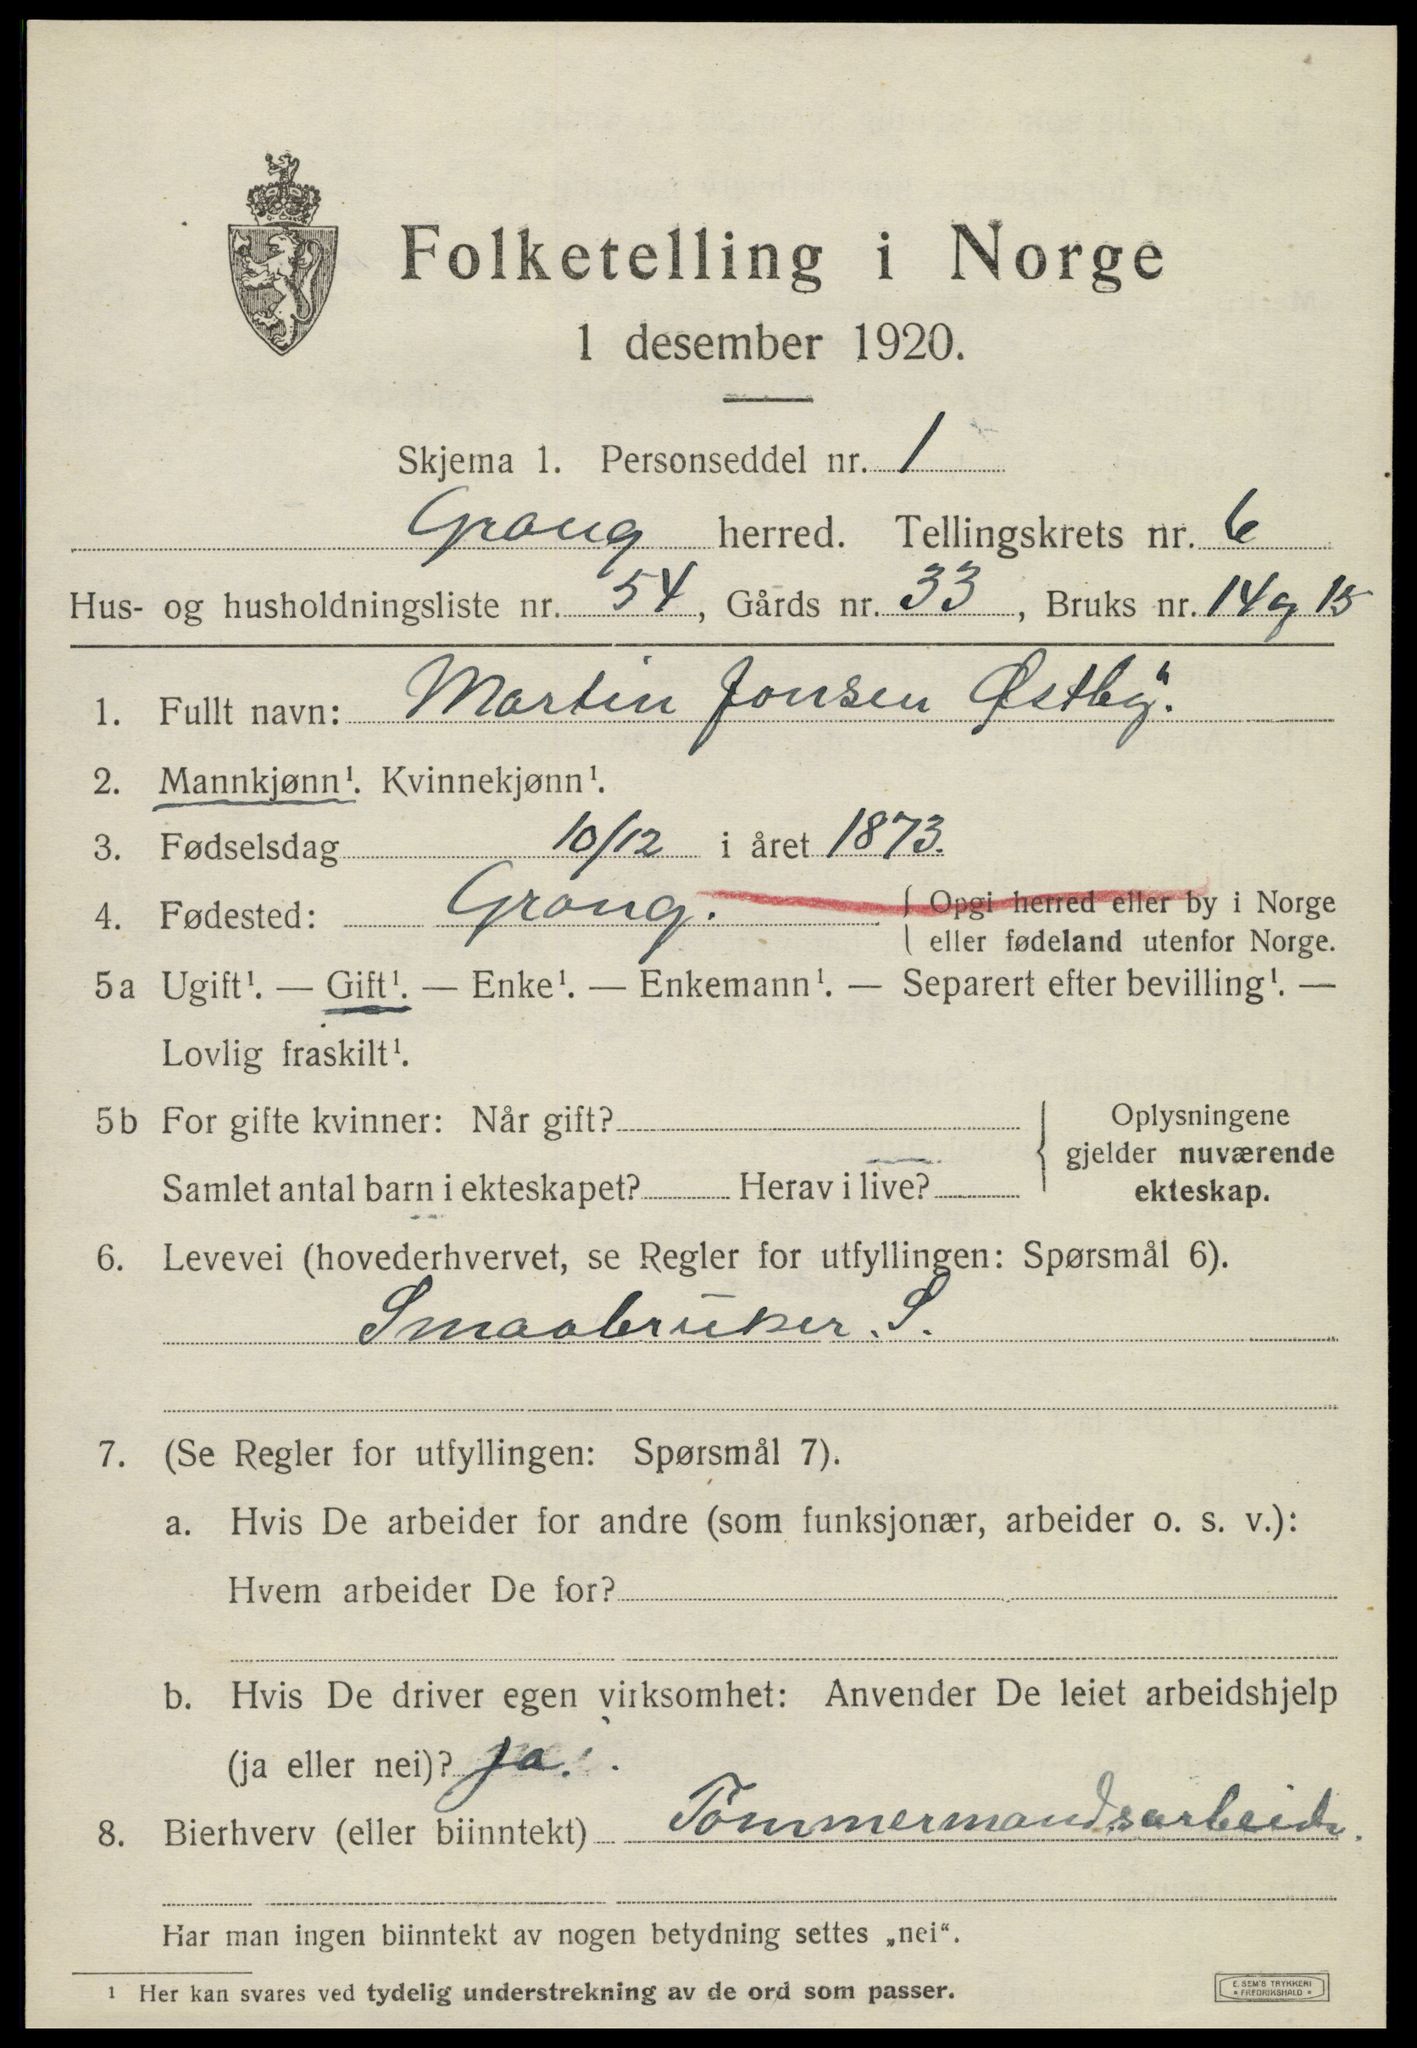 Folketelling i Norge
1 desember 1920.
Skjema 1. Personseddel nr. 1
Grong herred. Tellingskrets nr. 6
Hus- og husholdningsliste nr. 54, Gårds nr. 33, Bruks nr. 14 og 15
1. Fullt navn: Martin Jonsen Østby.
2. Mannkjønn¹. Kvinnekjønn¹.
3. Fødselsdag 10/12 i året 1873.
4. Fødested: Grong. { Opgi herred eller by i Norge
eller fødeland utenfor Norge.
5a Ugift¹. — Gift¹. — Enke¹. — Enkemann¹. — Separert efter bevilling¹. —
Lovlig fraskilt¹.
5b For gifte kvinner: Når gift?
Samlet antal barn i ekteskapet? Herav i live?
Oplysningene
gjelder nuværende
ekteskap.
6. Levevei (hovederhvervet, se Regler for utfyllingen: Spørsmål 6).
Smaabruker. S.
7. (Se Regler for utfyllingen: Spørsmål 7).
a. Hvis De arbeider for andre (som funksjonær, arbeider o. s. v.):
Hvem arbeider De for?
b. Hvis De driver egen virksomhet: Anvender De leiet arbeidshjelp
(ja eller nei)? ja.
8. Bierhverv (eller biinntekt) Tømmermandsarbeide.
Har man ingen biinntekt av nogen betydning settes „nei“.
¹ Her kan svares ved tydelig understrekning av de ord som passer.
E. SEM'S TRYKKERI
* FREDRIKSHALD *